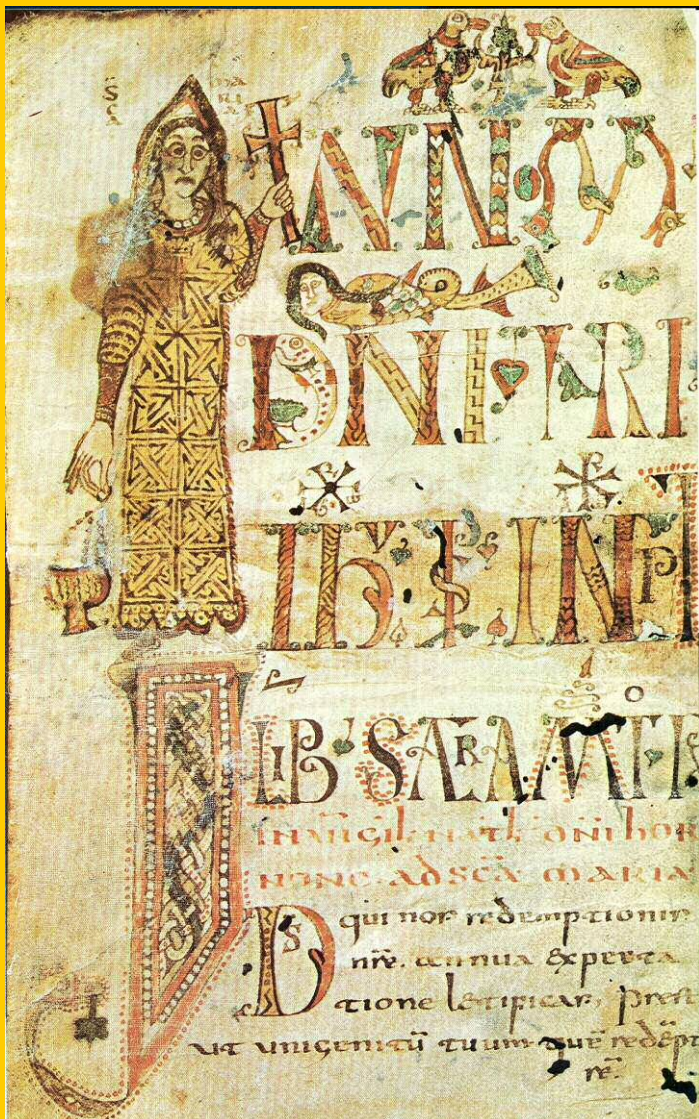 SCA MARIA
NNOM
DNI·NRI
LIB·SACRAMTO
In uigil natl dni hor
none ad sca maria
Ds qui nos redemptionis
nre. annua expecta
tione letificas, prest
ut unigenitū tuum quē redēpt
rē